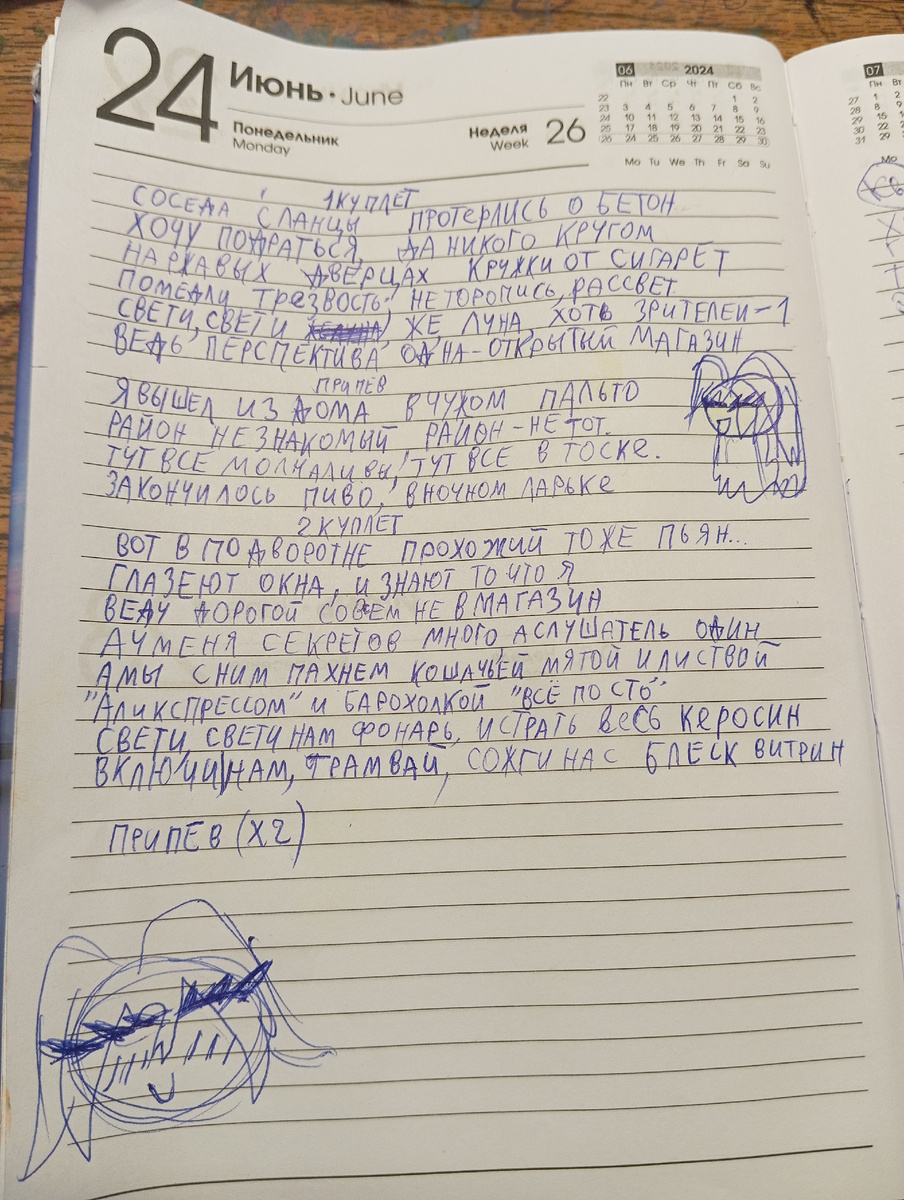 24 Июнь · June
Понедельник
Monday
Неделя 26
Week
06 2024
Пн Вт Ср Чт Пт Сб Вс
22 1 2
23 3 4 5 6 7 8 9
24 10 11 12 13 14 15 16
25 17 18 19 20 21 22 23
26 24 25 26 27 28 29 30
Mo Tu We Th Fr Sa Su
1 КУПЛЕТ
СОСЕДА СЛАНЦЫ ПРОТЕРЛИСЬ О БЕТОН
ХОЧУ ПОДРАТЬСЯ, ДА НИКОГО КРУГОМ
НА РЖАВЫХ ДВЕРЦАХ КРУЖКИ ОТ СИГАРЕТ
ПОМЕДЛИ ТРЕЗВОСТЬ! НЕ ТОРОПИСЬ, РАССВЕТ
СВЕТИ, СВЕТИ ЖЕ, ЛУНА, ХОТЬ ЗРИТЕЛЕЙ-1
ВЕДЬ ПЕРСПЕКТИВА ОДНА-ОТКРЫТЫЙ МАГАЗИН
ПРИПЕВ
Я ВЫШЕЛ ИЗ ДОМА В ЧУЖОМ ПАЛЬТО
РАЙОН НЕЗНАКОМЫЙ РАЙОН-НЕ ТОТ.
ТУТ ВСЕ МОЛЧАЛИВЫ, ТУТ ВСЕ В ТОСКЕ.
ЗАКОНЧИЛОСЬ ПИВО, В НОЧНОМ ЛАРЬКЕ
2 КУПЛЕТ
ВОТ В ПОДВОРОТНЕ ПРОХОЖИЙ ТОЖЕ ПЬЯН...
ГЛАЗЕЮТ ОКНА, И ЗНАЮТ ТО ЧТО Я
ВЕДУ ДОРОГОЙ СОВСЕМ НЕ В МАГАЗИН
А У МЕНЯ СЕКРЕТОВ МНОГО, А СЛУШАТЕЛЬ ОДИН
А МЫ С НИМ ПАХНЕМ КОШАЧЬЕЙ МЯТОЙ И ЛИСТВОЙ
"АЛИКСПРЕССОМ" И БАРОХОЛКОЙ "ВСЁ ПО СТО"
СВЕТИ, СВЕТИ НАМ ФОНАРЬ, ИСТРАТЬ ВЕСЬ КЕРОСИН
ВКЛЮЧИ НАМ, ТРАМВАЙ, СОЖГИ НАС БЛЕСК ВИТРИН
ПРИПЕВ (Х2)
07
Пн Вт
27 1 2
28 8 9
29 15
30 22
31 29
Mo